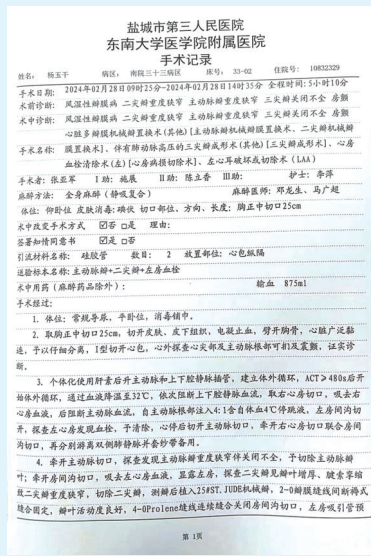 盐城市第三人民医院
东南大学医学院附属医院
手术记录
姓名： 杨玉干 病区：南院三十三病区 床号：33-02 住院号：10832329
手术日期：2024年02月28日09时25分-2024年02月28日14时35分 全程时间:5小时10分
术前诊断：风湿性瓣膜病 二尖瓣重度狭窄 主动脉瓣重度狭窄 三尖瓣关闭不全 房颤
术中诊断：风湿性瓣膜病 二尖瓣重度狭窄 主动脉瓣重度狭窄 三尖瓣关闭不全 房颤
心脏多瓣膜机械瓣置换术(其他)[主动脉瓣机械瓣膜置换术、二尖瓣机械瓣
手术名称：膜置换术]、伴有肺动脉高压的三尖瓣成形术(其他)[三尖瓣成形术]、心房
血栓清除术(左)[心房病损切除术]、左心耳破坏或切除术(LAA)
手术者：张亚军 I助：施展 II助：陈立香 III助： 护士：李萍
麻醉方法：全身麻醉(静吸复合) 麻醉医师：邓龙生、马广超
体位：仰卧位 皮肤消毒:碘伏 切口部位、方向、长度：胸正中切口25cm
术中改变手术方式 ☑否 □是 理由：
签署知情同意书 ☑是 □否
引流材料名称：硅胶管 数目：2 放置部位：心包纵隔
送验标本名称:主动脉瓣+二尖瓣+左房血栓
术中用药（麻醉药品除外）： 输血 875ml
手术经过：
1. 体位：常规导尿，平卧位，消毒铺巾。
2. 取胸正中切口25cm，切开皮肤、皮下组织，电凝止血，劈开胸骨，心脏广泛黏
连，予以仔细分离，I型切开心包，心外探查心尖部及主动脉根部可扪及震颤，证实诊
断。
3. 个体化使用肝素后升主动脉和上下腔静脉插管，建立体外循环，ACT≥480s后开
始体外循环，通过血液降温至32℃，依次阻断上下腔静脉血流，取右心房切口，吸去右
心房血液，后阻断主动脉血流，自主动脉根部注入4:1含自体血4℃停跳液，左房间沟切
开，探查左心房发现血栓，予清除，心停后切开主动脉切口，牵开右心房切口联合房间
沟切口，再分别游离双侧肺静脉并套纱带备用。
4. 牵开主动脉切口，探查发现主动脉瓣重度狭窄伴关闭不全，予切除主动脉瓣
瓣；牵开房间沟切口，吸去左心房血液，显露左房，探查二尖瓣见瓣叶增厚、腱索挛缩
致二尖瓣重度狭窄，切除二尖瓣，测瓣后植入25#ST.JUDE机械瓣，2-0瓣膜缝线间断褥式
缝合固定，瓣叶活动度良好，4-0Prolene缝线连续缝合关闭房间沟切口，左房吸引管预
第 1页